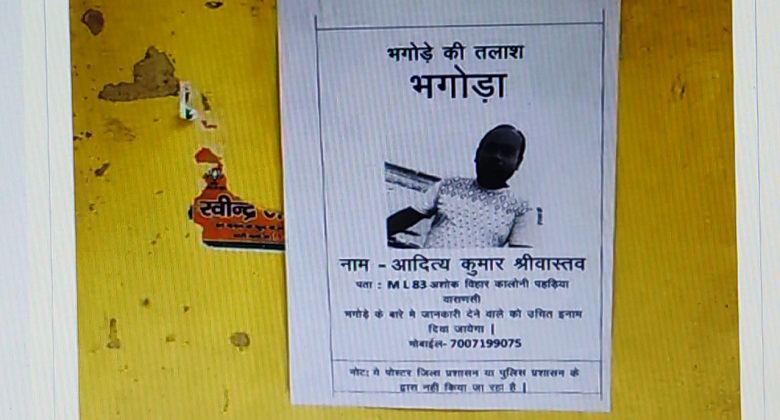 भगोड़े की तलाश
भगोड़ा
नाम - आदित्य कुमार श्रीवास्तव
पता : M L 83 अशोक विहार कालोनी पहड़िया
वाराणसी
भगोड़े के बारे मे जानकारी देने वाले को उचित इनाम
दिया जायेगा |
मोबाईल- 7007199075
नोट: ये पोस्टर जिला प्रशासन या पुलिस प्रशासन के
द्वारा नहीं किया जा रहा है |
रवीन्द्र